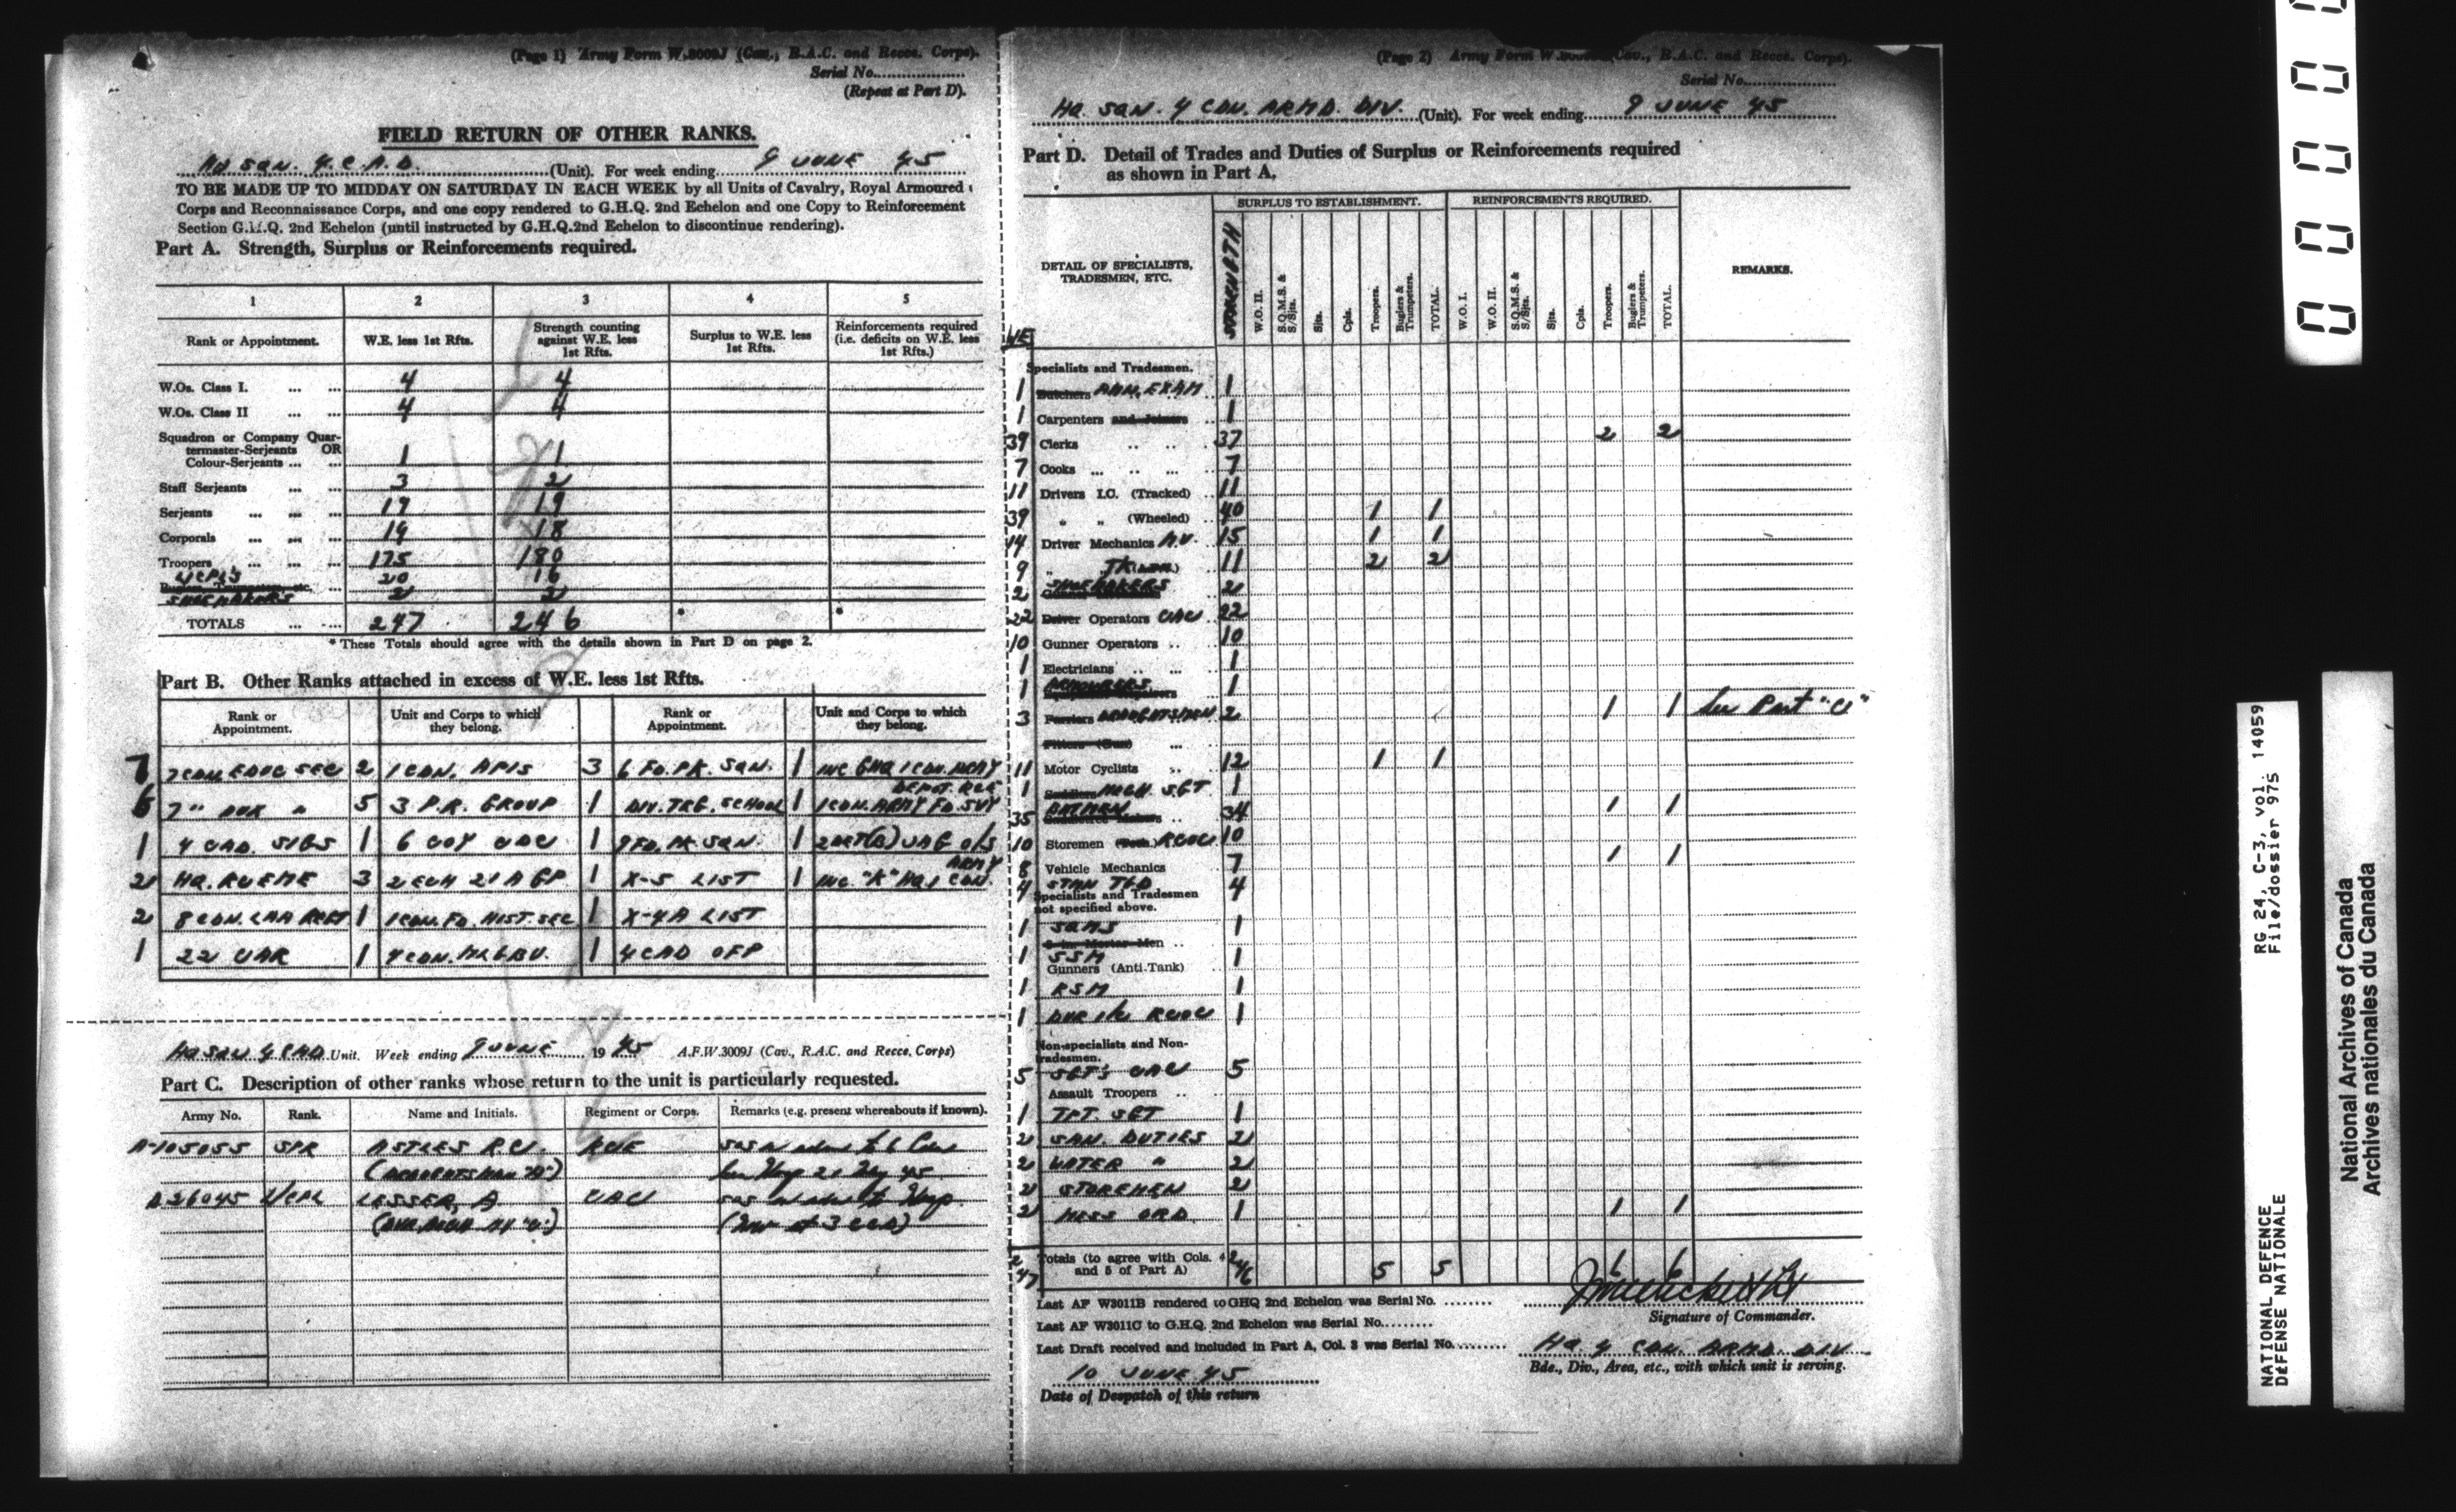 (Page 1) Army Form W.3009J (Cav., R.A.C. and Recce. Corps).
Serial No....................
(Repeat at Part D).
FIELD RETURN OF OTHER RANKS.
HQ SQN. 4 C.A.D. (Unit). For week ending 9 JUNE 45
TO BE MADE UP TO MIDDAY ON SATURDAY IN EACH WEEK by all Units of Cavalry, Royal Armoured
Corps and Reconnaissance Corps, and one copy rendered to G.H.Q. 2nd Echelon and one Copy to Reinforcement
Section G.H.Q. 2nd Echelon (until instructed by G.H.Q.2nd Echelon to discontinue rendering).
Part A. Strength, Surplus or Reinforcements required.
1 2 3 4 5
Rank or Appointment. W.E. less 1st Rfts. Strength counting against W.E. less 1st Rfts. Surplus to W.E. less 1st Rfts. Reinforcements required (i.e. deficits on W.E. less 1st Rfts.)
W.Os. Class I. ... ... 4 4
W.Os. Class II ... ... 4 4
Squadron or Company Quar-
termaster-Serjeants OR
Colour-Serjeants ... ... 1 1
Staff Serjeants ... ... 3 2
Serjeants ... ... ... 19 19
Corporals ... ... ... 19 18
Troopers ... ... ... 175 180
L/CPLS 20 16
SHOEMAKERS 2 2
TOTALS ... ... 247 246 * *
* These Totals should agree with the details shown in Part D on page 2.
Part B. Other Ranks attached in excess of W.E. less 1st Rfts.
Rank or Appointment. Unit and Corps to which they belong. Rank or Appointment. Unit and Corps to which they belong.
7 7 CDN EDUC SEC 2 1 CDN. APIS 3 6 FD. PK. SQN. 1 INC GHQ 1 CDN. ARMY
6 7 " AUX " 5 3 P.R. GROUP 1 DIV. TRG. SCHOOL 1 1 CDN. ARMY FD. SVY DEPOT. RCE
1 4 CAD. SIGS 1 6 COY CDC 1 9 FD. PK. SQN. 1 2 DET(B) CAG O/S
2 HQ. RCEME 3 2 ECH 21 A GP 1 X-5 LIST 1 INC. "K" HQ 1 CDN. ARMY
2 8 CDN. LAA REGT 1 1 CDN. FD. HIST. SEC 1 X-4A LIST
1 22 CAR 1 1 4 CAD OFP
HQ SQN 4 CAD Unit. Week ending 9 JUNE 1945 A.F.W.3009J (Cav., R.A.C. and Recce. Corps)
Part C. Description of other ranks whose return to the unit is particularly requested.
Army No. Rank. Name and Initials. Regiment or Corps. Remarks (e.g. present whereabouts if known).
A-105055 SPR ASTLES R.C. RCE SOS
(DRAUGHTSMAN "B") Hosp 21 May 45
26045 L/CPL LESSER, A CAC SOS Hosp.
(DVR. MECH "C")
(Page 2) Army Form (Cav., R.A.C. and Recce. Corps).
Serial No....................
HQ SQN. 4 CDN. ARMD. DIV. (Unit). For week ending 9 JUNE 45
Part D. Detail of Trades and Duties of Surplus or Reinforcements required
as shown in Part A.
SURPLUS TO ESTABLISHMENT. REINFORCEMENTS REQUIRED.
DETAIL OF SPECIALISTS, TRADESMEN, ETC. STRENGTH W.O. II. S.Q.M.S. & S/Sjts. Sjts. Cpls. Troopers. Buglers & Trumpeters. TOTAL. W.O. I. W.O. II. S.Q.M.S. & S/Sjts. Sjts. Cpls. Troopers. Buglers & Trumpeters. TOTAL. REMARKS.
WE
Specialists and Tradesmen.
1 Butchers AMN. EXAM 1
1 Carpenters and Joiners .. 1
39 Clerks .. .. .. 37 2 2
7 Cooks ... .. ... 7
11 Drivers I.C. (Tracked) .. 11
39 " " (Wheeled) .. 40 1 1
14 Driver Mechanics A.V. 15 1 1
9 " 11 2 2
2 SHOEMAKERS 2
22 Driver Operators CAC 22
10 Gunner Operators .. 10
1 Electricians .. ... 1
1 ARMOURERS 1
3 Farriers DRAUGHTSMEN 2 1 1 See Part "C"
Fitters (Gun) ...
11 Motor Cyclists .. 12 1 1
1 Saddlers MECH. SGT 1
35 BATMEN 34 1 1
10 Storemen (Tech.) RCOC 10
8 Vehicle Mechanics 7 1 1
4 STMN TGD 4
Specialists and Tradesmen
not specified above.
1 SQMS 1
3-in. Mortar Men ..
1 SSM 1
Gunners (Anti-Tank)
1 RSM 1
1 DVR I/C RCOC 1
Non-specialists and Non-
tradesmen.
5 SGT'S CAC 5
Assault Troopers ..
1 TPT. SGT 1
2 SAN. DUTIES 2
2 WATER " 2
2 STOREMEN 2
2 MESS ORD. 1 1 1
247 Totals (to agree with Cols. 4
and 5 of Part A) 246 5 5 6 6
Last AF W3011B rendered to GHQ 2nd Echelon was Serial No. ........
Last AF W3011C to G.H.Q. 2nd Echelon was Serial No.........
Last Draft received and included in Part A, Col. 3 was Serial No.........
Signature of Commander.
HQ 4 CDN. ARMD. DIV
Bde., Div., Area, etc., with which unit is serving.
10 JUNE 45
Date of Despatch of this return
RG 24, C-3, vol. 14059
File/dossier 975
NATIONAL DEFENCE
DÉFENSE NATIONALE
National Archives of Canada
Archives nationales du Canada